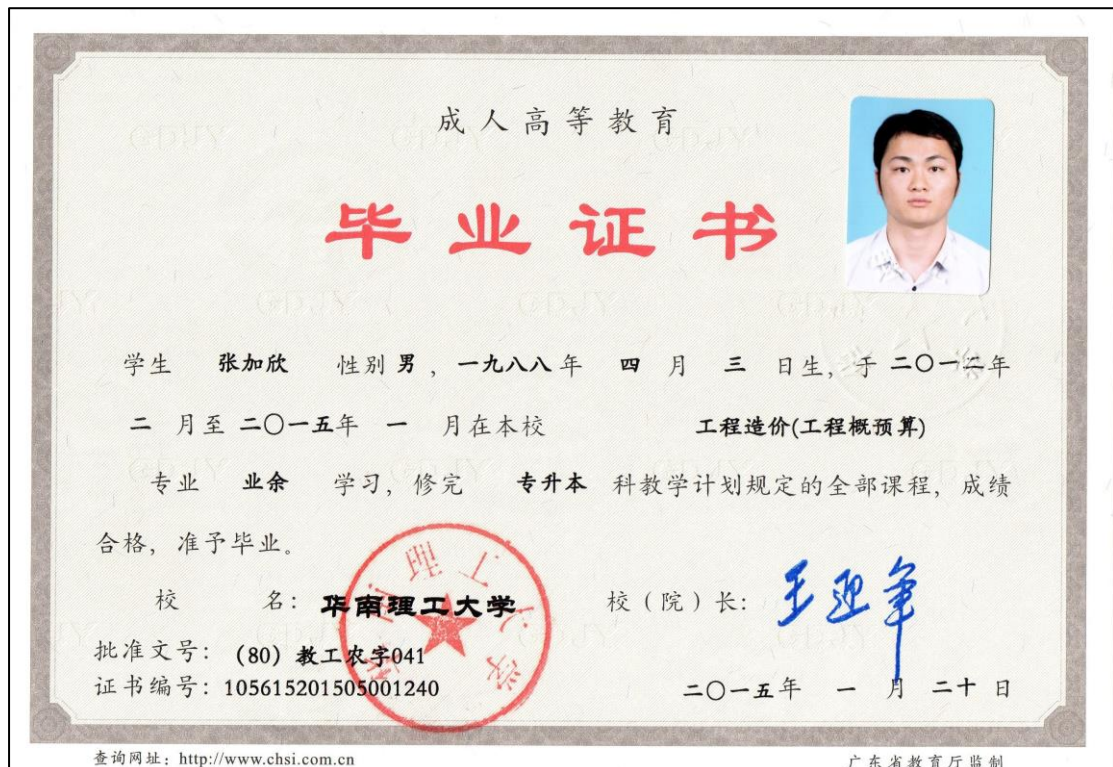 成人高等教育
毕业证书
学生 张加欣 性别 男 , 一九八八 年 四 月 三 日生, 于 二〇一二 年
二 月至 二〇一五 年 一 月在本校 工程造价(工程概预算)
专业 业余 学习, 修完 专升本 科教学计划规定的全部课程, 成绩
合格, 准予毕业。
校 名: 华南理工大学 校(院)长: 王迎军
华南理工大学
批准文号: (80) 教工农字041
证书编号: 105615201505001240 二〇一五年 一 月 二十 日
查询网址: http://www.chsi.com.cn 广东省教育厅监制